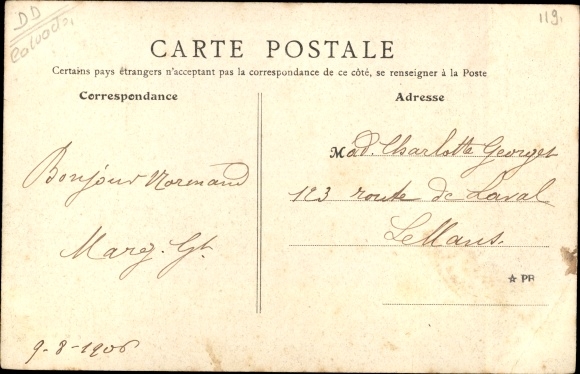 DD
Calvados
119.
CARTE POSTALE
Certains pays étrangers n'acceptant pas la correspondance de ce côté, se renseigner à la Poste
Correspondance
Adresse
Bonjour Normand
Marg. Gt.
9-8-1906
Mad. Charlotte Georget
123 route de Laval
Le Mans.
☆ PB